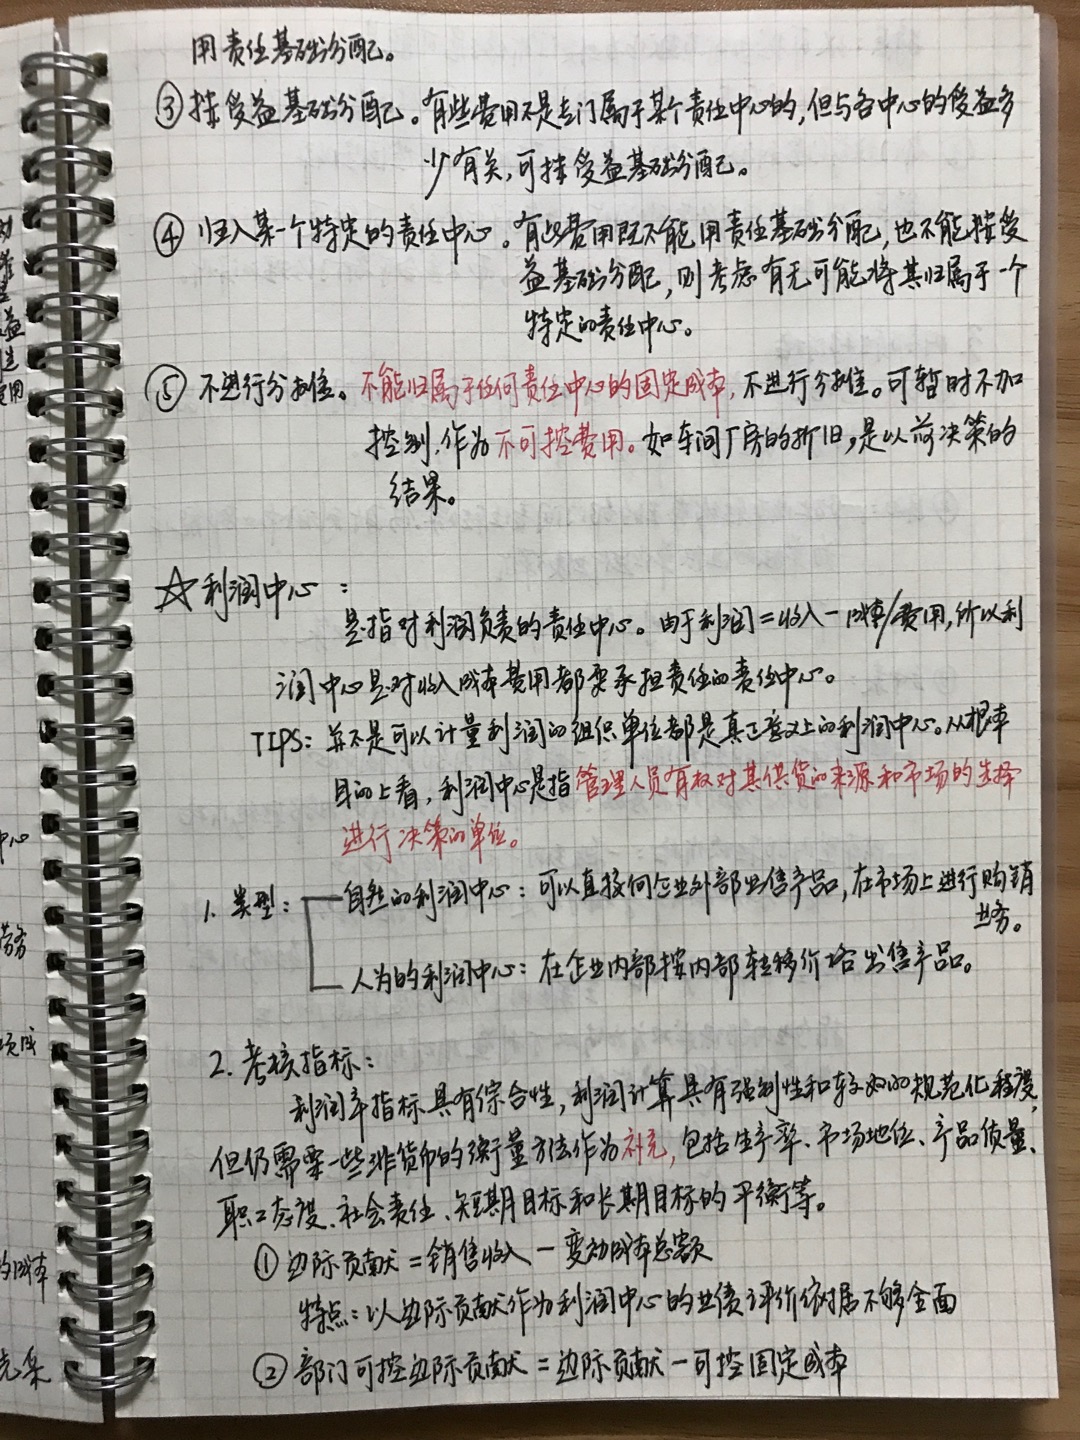 用责任基础分配。
③ 按受益基础分配。有些费用不是专门属于某个责任中心的,但与各中心的受益多
少有关,可按受益基础分配。
④ 归入某一个特定的责任中心。有些费用既不能用责任基础分配,也不能按受
益基础分配,则考虑有无可能将其归属于一个
特定的责任中心。
⑤ 不进行分摊。不能归属于任何责任中心的固定成本,不进行分摊。可暂时不加
控制,作为不可控费用。如车间厂房的折旧,是以前决策的
结果。
☆利润中心:
是指对利润负责的责任中心。由于利润=收入-成本/费用,所以利
润中心是对收入成本费用都要承担责任的责任中心。
TIPS:并不是可以计量利润的组织单位都是真正意义上的利润中心。从根本
目的上看,利润中心是指管理人员有权对其供货的来源和市场的选择
进行决策的单位。
1. 类型:
自然的利润中心:可以直接向企业外部出售产品,在市场上进行购销
业务。
人为的利润中心:在企业内部按内部转移价格出售产品。
2. 考核指标:
利润率指标具有综合性,利润计算具有强制性和较好的规范化程度,
但仍需要一些非货币的衡量方法作为补充,包括生产率、市场地位、产品质量、
职工态度、社会责任、短期目标和长期目标的平衡等。
①边际贡献=销售收入-变动成本总额
特点:以边际贡献作为利润中心的业绩评价依据不够全面
②部门可控边际贡献=边际贡献-可控固定成本